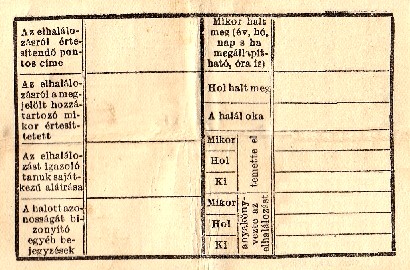 Az elhalálo-
zásról érte-
sitendő pon-
tos cime
Az elhalálo-
zásról a meg-
jelölt hozzá-
tartozó mi-
kor értesit-
tetett
Az elhalálo-
zást igazoló
tanuk saját-
kezű aláirása
A halott azo-
nosságát bi-
zonyitó
egyéb be-
jegyzések
Mikor halt
meg (év, hó,
nap s ha
megállapit-
ható, óra is)
Hol halt meg
A halál oka
Mikor
Hol
Ki
temette el
Mikor
Hol
Ki
anyakönyv-
vezte az
elhalálozást